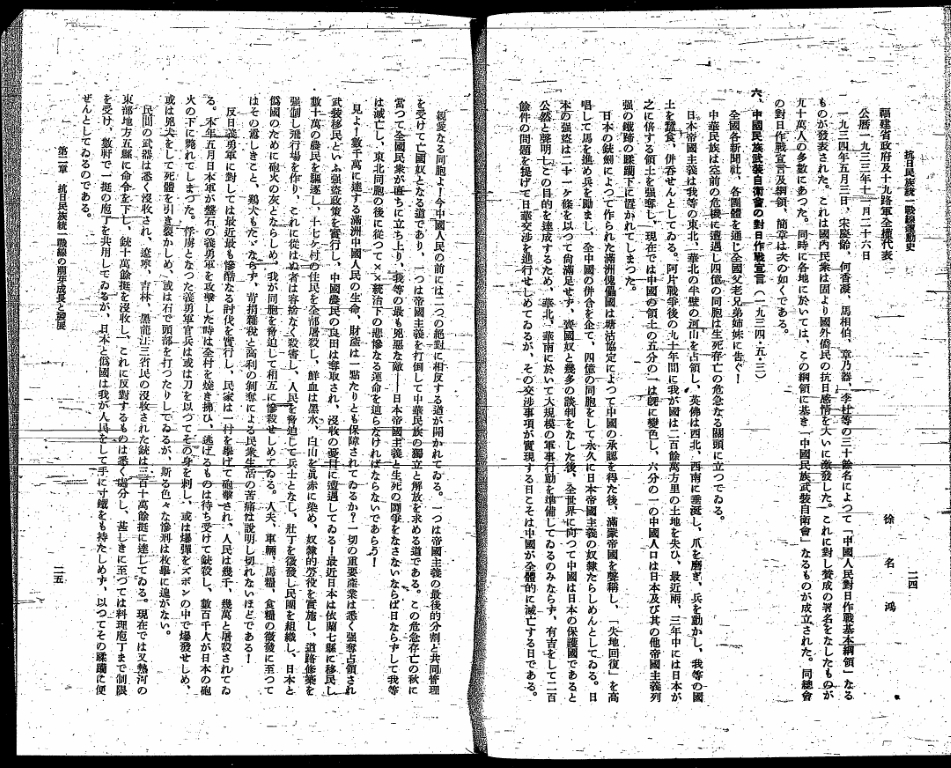 抗日民族統一戰線運動史
二四
福建省政府及十九路軍全權代表
徐名鴻
公曆一九三三年十一月二十六日
一九三四年五月三日、宋慶齡、何香凝、馬相伯、章乃器、李杜等の三十餘名によつて「中國人民對日作戰基本綱領」なる
ものが發表された。これは國內民衆は固より國外僑民の抗日感情を大いに激發した。これに對し贊成の署名をなしたものが
九十萬人の多數にあつた。同時に各地に於いては、この綱領に基き「中國民族武裝自衛會」なるものが成立された。同總會
の對日作戰宣言及綱領、簡章は次の如くである。
六、中國民族武裝自衛會の對日作戰宣言(一九三四・五・三)
全國各新聞社、各團體を通じ全國父老兄弟姉妹に告ぐ！
中華民族は空前の危機に遭遇し四億の同胞は生死存亡の危急なる關頭に立つてゐる。
日本帝國主義は我等の東北、華北の半壁の河山を占領し、英佛は西北、西南に垂涎し、爪を磨ぎ、兵を動かし、我等の國
土を蠶食、併呑せんとしてゐる。阿片戰爭後の九十年間に我が國は二百餘萬方里の土地を失ひ、最近兩、三年中には日本が
之に倍する領土を強奪し、現在では中國の領土の五分の一は既に變色し、六分の一の中國人口は日本及び其の他帝國主義列
強の鐵蹄の蹂躪下に置かれてしまつた。
日本の銃劍によつて作られた滿洲傀儡國は塘沽協定によつて中國の承認を得た後、滿蒙帝國を聲稱し、「失地回復」を高
唱して馬を進め兵を勵まし、全中國の併合を企て、四億の同胞をして永久に日本帝國主義の奴隸たらしめんとしてゐる。日
本の強盜は二十一ケ條を以つて尙滿足せず、賣國奴と幾多の談判をなした後、全世界に向つて中國は日本の保護國であると
公然と聲明しこの目的を達成するため、華北、華南に於いて大規模の軍事行動を準備してゐるのみならず、有吉をして二百
餘件の問題を提げて日華交涉を進行せしめてゐるが、その交涉事項が實現する日こそは中國が全體的に滅亡する日である。
親愛なる同胞よ！今中國人民の前には二つの絕對に相反する道が開かれてゐる。一つは帝國主義の最後的分割と共同管理
を受けて亡國奴となる道であり、一つは帝國主義を打倒して中華民族の獨立と解放を求める道である。この危急存亡の秋に
當つて全國民衆が直ちに立ち上り、我等の最も兇惡な敵――日本帝國主義と生死の鬪爭をなさないならば日ならずして我等
は滅亡し、東北同胞の後に從つて××統治下の悲慘なる運命を辿らなければならないであらう！
見よ！數千萬に達する滿洲中國人民の生命、財產は一點たりとも保障されてゐるか？一切の重要產業は悉く強奪占領され
武裝移民といふ強盜政策を實行し、中國農民の良田は奪取され、沒收の憂目に遭遇してゐる！最近日本は依蘭七縣に移民し
數十萬の農民を驅逐し、十七ケ村の住民を全部屠殺し、鮮血は黑水、白山を眞赤に染め、奴隸的勞役を實施し、道路修築を
強制し飛行場を作り、これに從はぬ者は容捨なく殺害し、人民を脅迫して兵士となし、壯丁を徵發し民團を組織し、日本と
僞國のために砲火の灰とならしめ、我が同胞を脅迫して相互に慘殺せしめてゐる。人夫、車輛、馬糧、食糧の徵發に至つて
はその激しきこと、鷄犬もたゞならず、苛捐雜稅と高利の剝奪による民衆生活の苦痛は說明し切れないほどである！
反日義勇軍に對しては最近最も慘酷なる討伐を實行し、民家は一村を擧げて砲擊され、人民は幾千、幾萬と屠殺されてゐ
る。本年五月日本軍が盤石の義勇軍を攻擊した時は全村を燒き拂ひ、逃げるものは待ち受けて銃殺し、數百千人が日本の砲
火の下に斃れてしまつた。俘虜となつた義勇軍官兵は或は刀を以つてその身を刺し、或は爆彈をズボンの中で爆發せしめ、
或は兇犬をして死體を引き裂かしめ、或は石で頭部を打つたりしてゐるが、斯る色々な慘刑は枚擧に遑がない。
民間の武器は悉く沒收され、遼寧、吉林、黑龍江三省民の沒收された銃は三百十萬餘挺に達してゐる。現在では又熱河の
東部地方五縣に命令を下し、銃十萬餘挺を沒收し、これに反對するものは悉く處分し、甚しきに至つては料理庖丁まで制限
を受け、數軒で一挺の庖丁を共用してゐるが、日本と僞國は我が人民をして手に寸鐵をも持たしめず、以つてその蹂躪に便
ぜんとしてゐるのである。
第二章 抗日民族統一戰線の成長と發展
二五